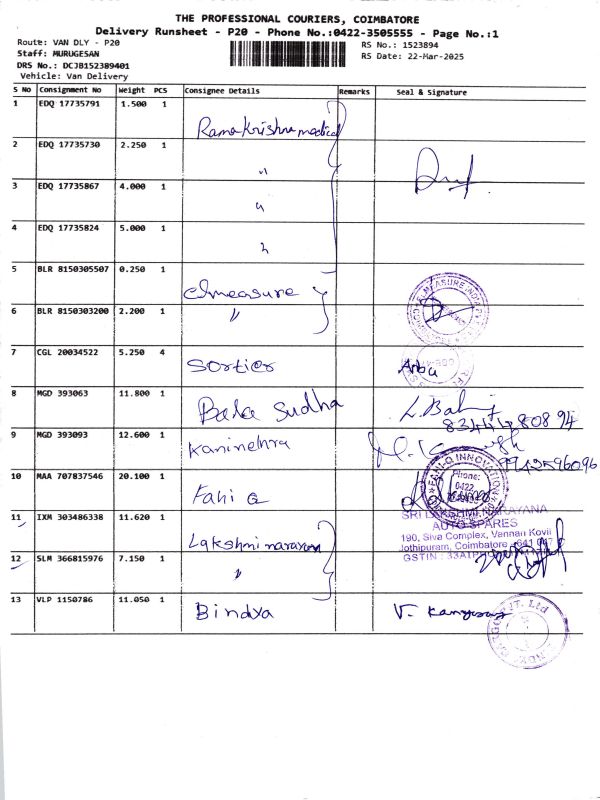 THE PROFESSIONAL COURIERS, COIMBATORE
Delivery Runsheet - P20 - Phone No.:0422-3505555 - Page No.:1
Route: VAN DLY - P20
Staff: MURUGESAN
DRS No.: DCJB152389401
Vehicle: Van Delivery
RS No.: 1523894
RS Date: 22-Mar-2025
S No Consignment No Weight PCS Consignee Details Remarks Seal & Signature
1 EDQ 17735791 1.500 1 Ramakrishna medical
2 EDQ 17735730 2.250 1 "
3 EDQ 17735867 4.000 1 "
4 EDQ 17735824 5.000 1 "
5 BLR 8150305507 0.250 1 emeasure
6 BLR 8150303200 2.200 1 "
7 CGL 20034522 5.250 4 Sortier Anbu
8 MGD 393063 11.800 1 Bala Sudha L. Bala
83444 80894
9 MGD 393093 12.600 1 Kaninehra
9942596096
10 MAA 707837546 20.100 1 Fani Q
FANI-Q INNOVATION
Phone:
0422
11 IXM 303486338 11.620 1 Lakshmi narayan
SRI LAKSHMI NARAYANA
AUTO SPARES
190, Siva Complex, Vannan Kovil
Jothipuram, Coimbatore - 641 047
GSTIN : 33A
12 SLM 366815976 7.150 1 "
13 VLP 1150786 11.050 1 Bindya V.